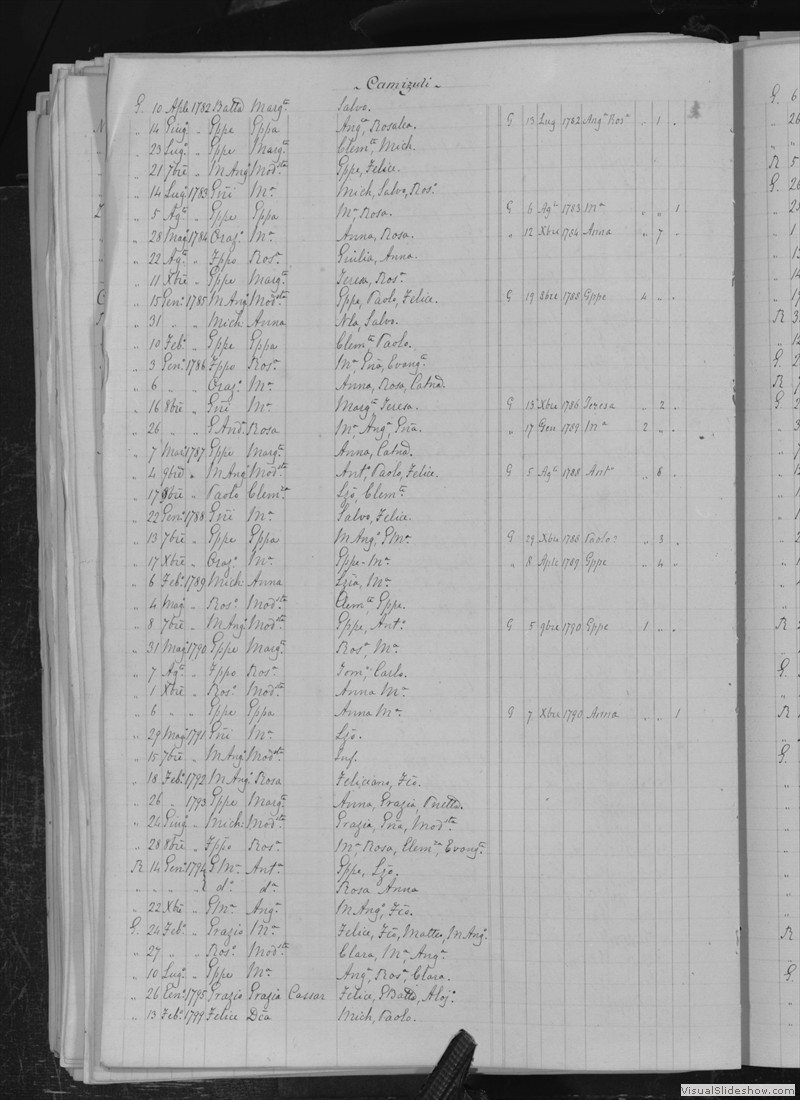 Camizuli
G. 10 Aple 1782 Batta Marga Salvo. G 13 Lug 1782 Anga Rosa „ 1 „
„ 14 Giugo „ Gppe Gppa Anga, Rosalea.
„ 23 Lugo „ Gppe Marga Clemte, Mich.
„ 21 7bre „ M Ango Modsta Gppe, Felice.
„ 14 Lugo 1783 Gni Ma Mich, Salvo, Roso
„ 5 Ago „ Gppe Gppa Ma, Rosa. G 6 Ago 1783 Ma „ „ 1
„ 28 Mago 1784 Orazo Ma Anna, Rosa. „ 12 Xbre 1784 Anna „ 7 „
„ 22 Ago „ Fppo Rosa Giulia, Anna.
„ 11 Xbre „ Gppe Marga Teresa, Rosa
„ 15 Geno 1785 M Ango Modsta Gppe, Paolo, Felice. G 19 8bre 1788 Gppe 4 „ „
„ 31 „ „ Mich Anna Nla, Salvo.
„ 10 Febo „ Gppe Gppa Clemte, Paolo.
„ 3 Geno 1786 Fppo Rosa Ma, Gna, Evanga
„ 6 „ „ Orazo Ma Anna, Rosa, Catna.
„ 16 8bre „ Gni Ma Marga, Teresa. G 13 Xbre 1786 Teresa „ 2 „
„ 26 „ „ G And. Rosa Ma, Anga, Gna. „ 17 Gen 1789 Ma 2 „ „
„ 7 Mar. 1787 Gppe Marga Anna, Catna.
„ 4 9bre „ M Ango Modsta Anto, Paolo, Felice. G 5 Ago 1788 Anto „ 8 „
„ 17 9bre „ Paolo Clemza Lzo, Clemte
„ 22 Geno 1788 Gni Ma Salvo, Felice.
„ 13 7bre „ Gppe Gppa M Ango, GMa G 29 Xbre 1788 Paolo „ 3 „
„ 17 Xbre „ Orazo Ma Gppe - Ma „ 8 Aple 1789 Gppe „ 4 „
„ 6 Febo 1789 Mich Anna Lzia, Ma
„ 4 Mago „ Roso Modsta Clemte, Gppe.
„ 8 7bre „ M Ango Modsta Gppe, Anto G 5 9bre 1790 Gppe 1 „ „
„ 31 Mago 1790 Gppe Marga Rosa, Ma
„ 7 Ago „ Fppo Rosa Tomo, Carlo.
„ 1 Xbre „ Roso Modsta Anna Ma
„ 6 „ „ Gppe Gppa Anna Ma G 7 Xbre 1790 Anna „ „ 1
„ 29 Mago 1791 Gni Ma Lzo.
„ 15 7bre „ M Ango Modsta Inf.
„ 18 Febo 1792 M Ango Rosa Feliciano, Fco.
„ 26 „ 1793 Gppe Marga Anna, Grazia, Vnetta.
„ 24 Giugo „ Mich Modsta Grazia, Gna, Modsta
„ 28 8bre „ Fppo Rosa Ma, Rosa, Clemza, Evanga
R 14 Geno 1794 G Ma Anta Gppe, Lzo.
„ „ „ „ do da Rosa Anna
„ 22 Xbre „ GMa Anga M Ango, Fco.
G. 24 Febo „ Grazio Ma Felice, Fco, Matteo, M Ango
„ 27 „ „ Roso Modsta Clara, Ma, Anga
„ 10 Lugo „ Gppe Ma Anga, Rosa, Clara.
„ 26 Geno 1795 Grazio Grazia Cassar Felice, GBatta, Alojo
„ 13 Febo 1799 Felice Dca Mich, Paolo.
VisualSlideshow.com